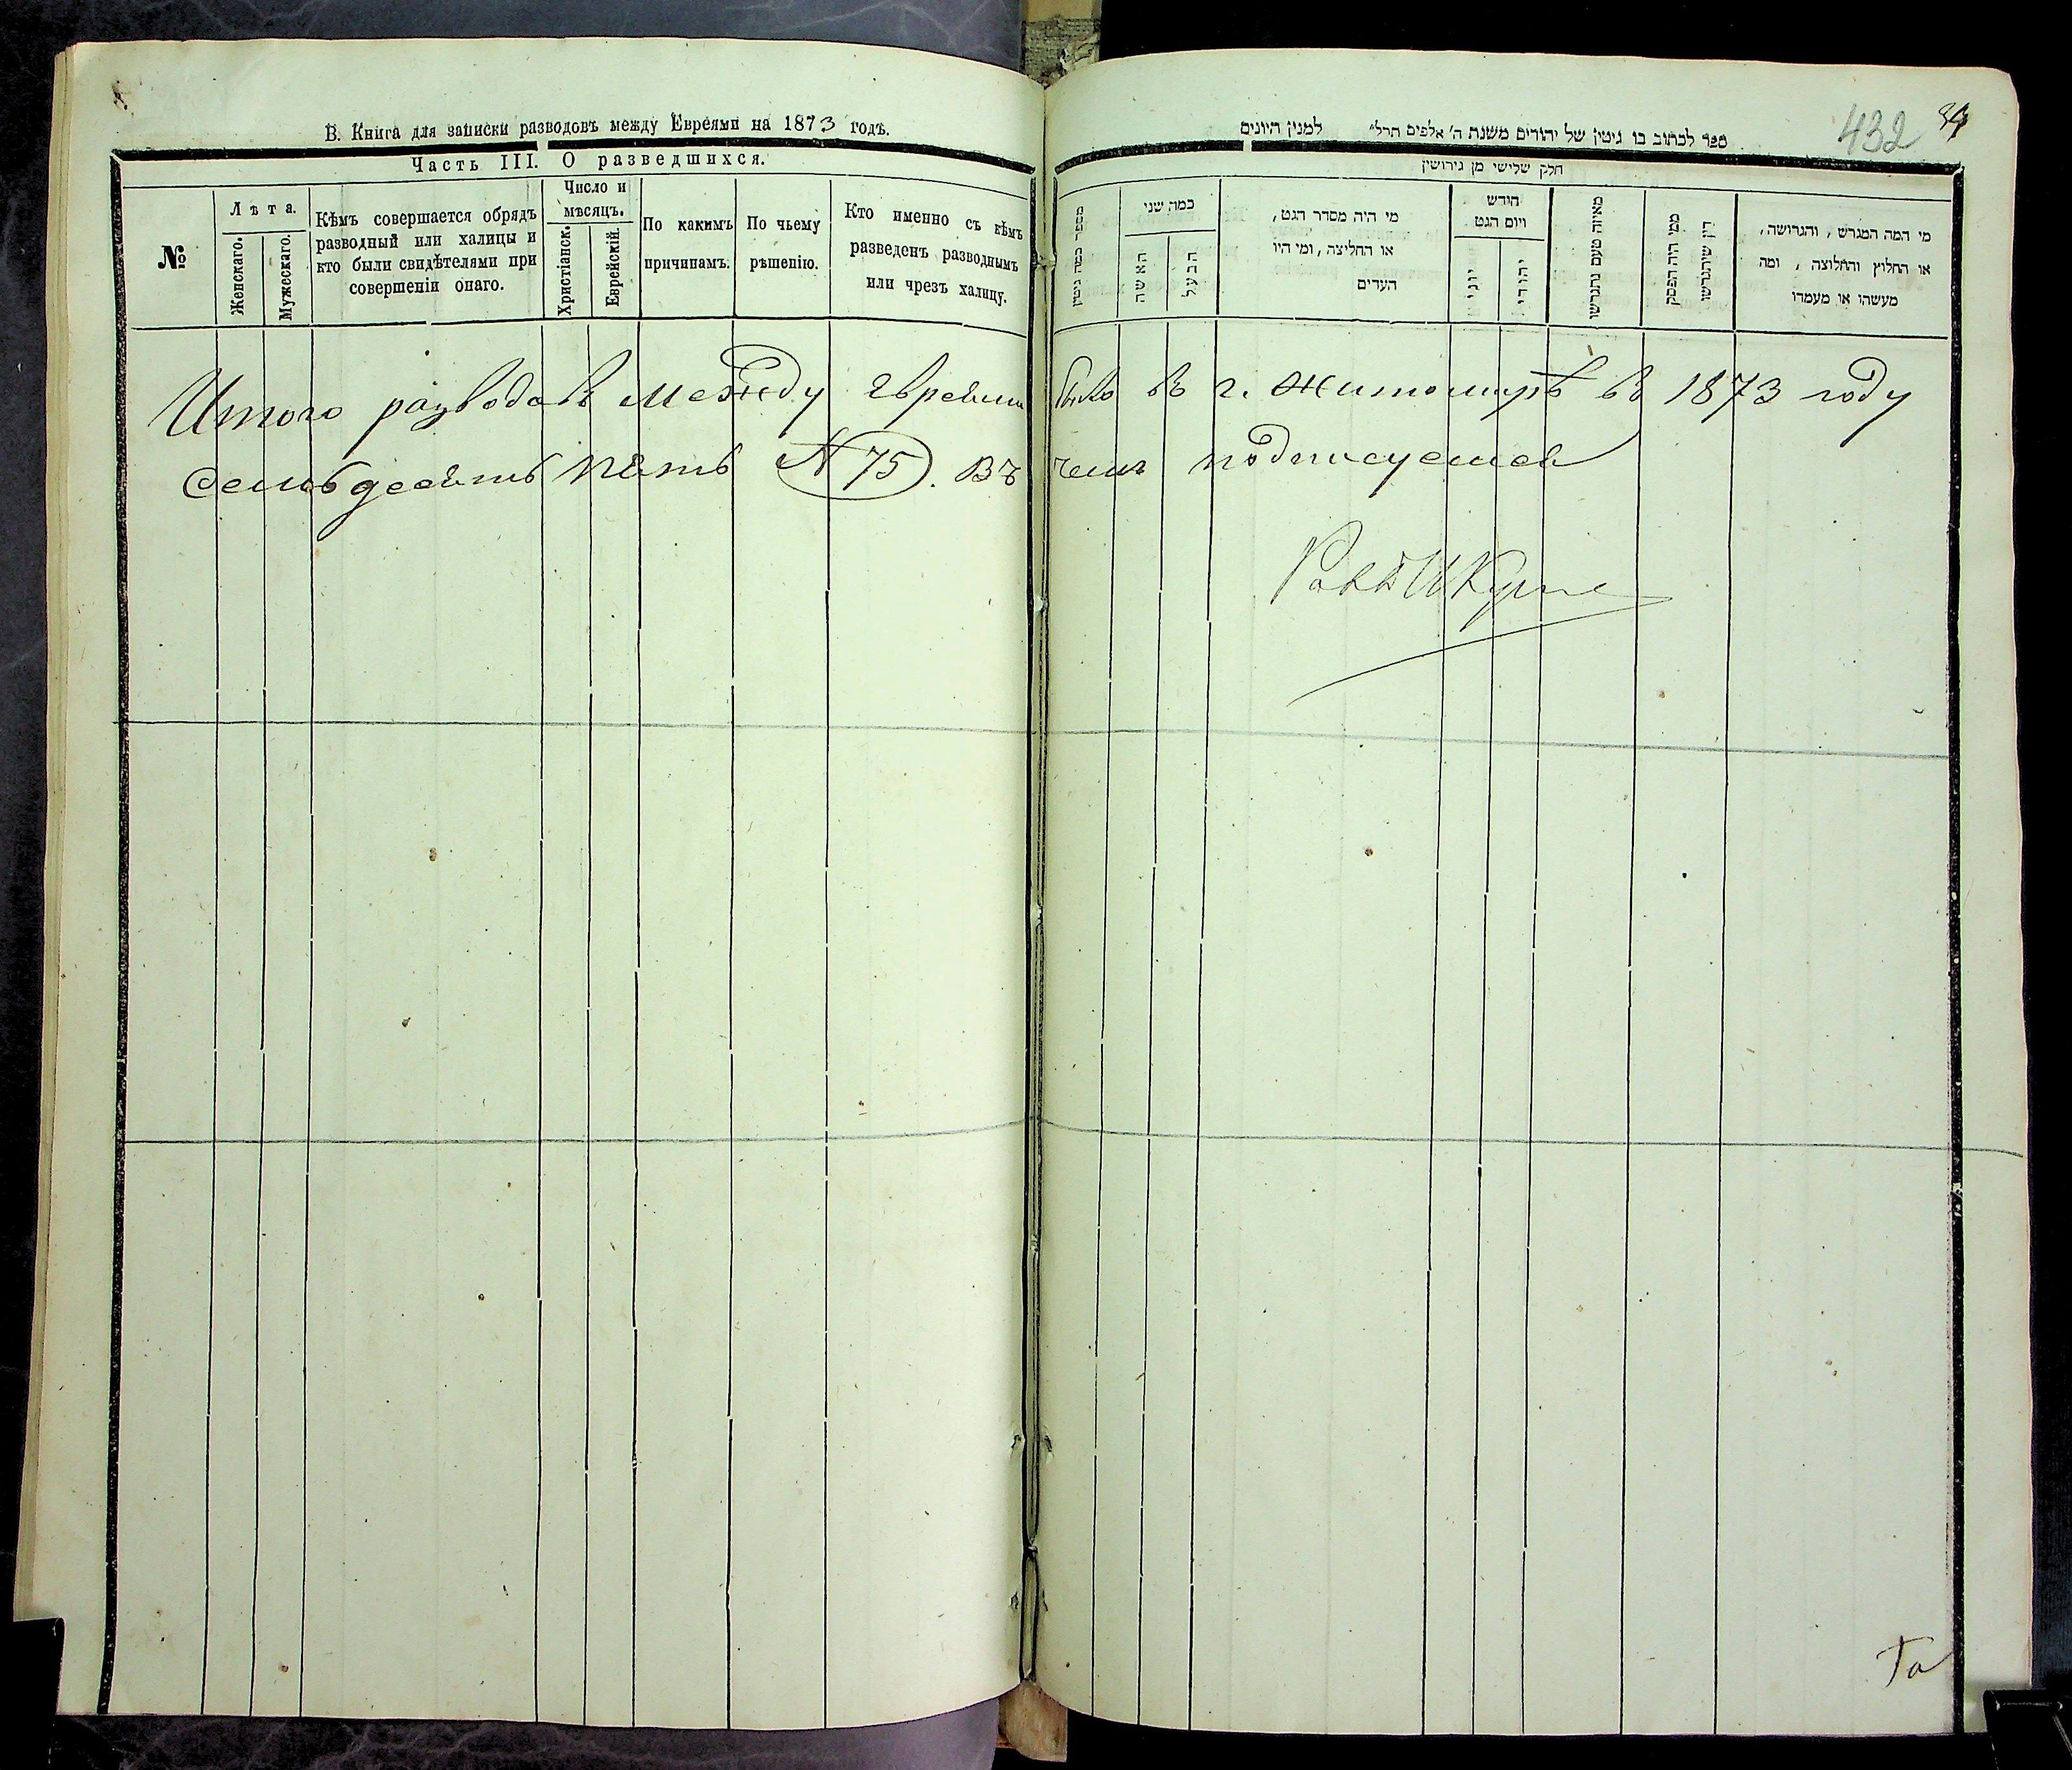 В. Книга для записки разводовъ между Евреями на 1873 годъ.
Часть III. О разведшихся.
№
Лѣта.
Женскаго.
Мужескаго.
Кѣмъ совершается обрядъ
разводный или халицы и
кто были свидѣтелями при
совершеніи онаго.
Число и
мѣсяцъ.
Христіанск.
Еврейскій.
По какимъ
причинамъ.
По чьему
рѣшенію.
Кто именно съ кѣмъ
разведенъ разводнымъ
или чрезъ халицу.
ספר לכתוב בו גיטין של יהודים משנת ה' אלפים תרל" למנין היונים
432
חלק שלישי מן גירושין
מספר כמה גיטין
כמה שני
האשה
הבעל
מי היה מסדר הגט,
או החליצה, ומי היו
העדים
חודש
ויום הגט
יוני
יהודי
מאיזה טעם נתגרשו
ממי היה הפסק
דין שיתגרשו
מי המה המגרש, והגרושה,
או החלוץ והחלוצה, ומה
מעשהו או מעמדו
Итого разводовъ между евреями было въ г. Житомирѣ въ 1873 году
семьдесятъ пять № 75. Въ чемъ подписуемся
То